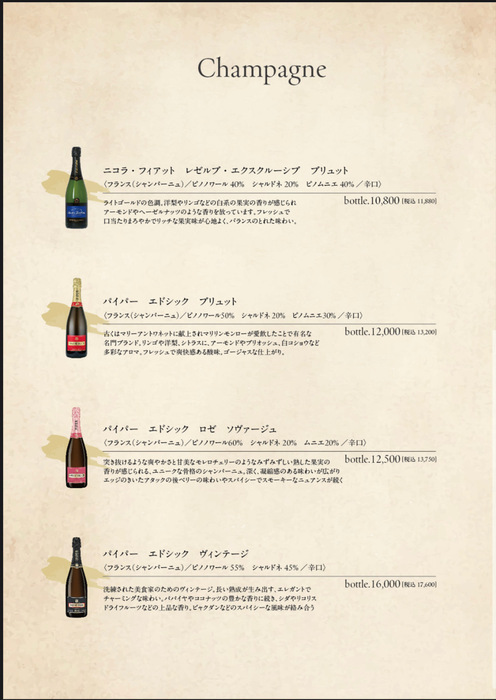 Champagne
ニコラ・フィアット　レゼルブ・エクスクルーシブ　ブリュット
〈フランス(シャンパーニュ)／ピノノワール 40%　シャルドネ 20%　ピノムニエ 40% ／辛口〉
ライトゴールドの色調、洋梨やリンゴなどの白系の果実の香りが感じられ
アーモンドやヘーゼルナッツのような香りを放っています。フレッシュで
口当たりまろやかでリッチな果実味が心地よく、バランスのとれた味わい。
bottle.10,800 [税込 11,880]
パイパー　エドシック　ブリュット
〈フランス(シャンパーニュ)／ピノノワール50%　シャルドネ 20%　ピノムニエ30% ／辛口〉
古くはマリーアントワネットに献上されマリリンモンローが愛飲したことで有名な
名門ブランド。リンゴや洋梨、シトラスに、アーモンドやブリオッシュ、白コショウなど
多彩なアロマ。フレッシュで爽快感ある酸味。ゴージャスな仕上がり。
bottle.12,000 [税込 13,200]
パイパー　エドシック　ロゼ　ソヴァージュ
〈フランス(シャンパーニュ)／ピノノワール60%　シャルドネ 20%　ムニエ20% ／辛口〉
突き抜けるような爽やかさと甘美なモレロチェリーのようなみずみずしい熟した果実の
香りが感じられる、ユニークな骨格のシャンパーニュ。深く、凝縮感のある味わいが広がり
エッジのきいたアタックの後ベリーの味わいやスパイシーでスモーキーなニュアンスが続く
bottle.12,500 [税込 13,750]
パイパー　エドシック　ヴィンテージ
〈フランス(シャンパーニュ)／ピノノワール 55%　シャルドネ 45% ／辛口〉
洗練された美食家のためのヴィンテージ。長い熟成が生み出す、エレガントで
チャーミングな味わい。パパイヤやココナッツの豊かな香りに続き、シダやリコリス
ドライフルーツなどの上品な香り。ビャクダンなどのスパイシーな風味が絡み合う
bottle.16,000 [税込 17,600]